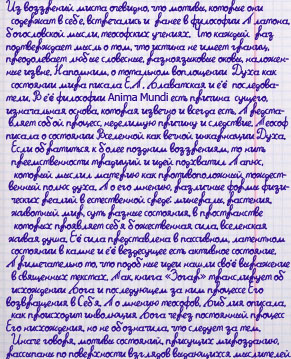 Из воззрений места очевидно, что мотивы, которые они
содержат в себе, встречались и ранее в философии Платона,
богословской мысли, теософских учениях. Что каждый раз
подтверждает мысль о том, что истина не имеет границ,
преодолевает любые словесные, разноязыковые оковы, наложен-
ные извне. Напомним, о тотальном воплощении Духа как
состоянии мира писала Е.П. Блаватская и её последова-
тели. В её философии Anima Mundi есть причина сущего,
изначальная основа, которая извечна и всегда есть. Представ-
ляет собой процесс, неделимую причину и следствие. Теософ
писала о состоянии Вселенной как вечной инкарнации Духа.
Если обратиться к более поздним воззрениям, то нить
преемственности традиций и идей подхватил Лапих,
который мыслил материю как противоположный тождест-
венный полюс духа. По его мнению, различные формы физи-
ческих реалий в естественной среде минералы, растения,
животный мир, суть разные состояния, в пространстве
которых проявляет себя божественная сила, вселенская
живая душа. Её сила представлена в пассивном, латентном
состоянии в камне и её вездесущее есть активное состояние.
Примечательно то, что подобные идеи нашли своё выражение
в священных текстах. Так, книга «Зогар» транслирует об
нисхождении Бога и последующем за ним процессе Его
возвращения в Себя. По мнению теософов, Библия описала,
как происходит инволюция Бога через постоянный процесс
Его нисхождения, но не обозначила, что следует за тем.
Иначе говоря, мотивы состояний, присущих мирозданию,
рассыпаны по поверхности взглядов выдающихся мыслителей